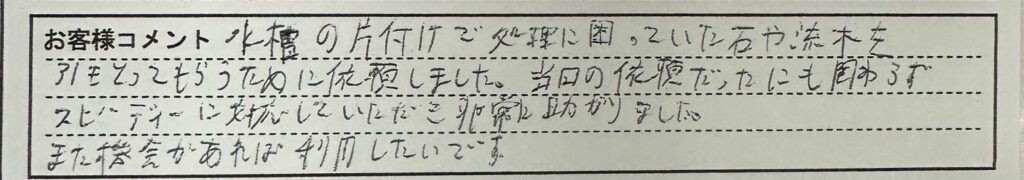 お客様コメント 水槽の片付けで処理に困っていた石や流木を
引きとってもらうために依頼しました。当日の依頼だったにも関わらず
スピーディーに対応していただき非常に助かりました。
また機会があれば利用したいです